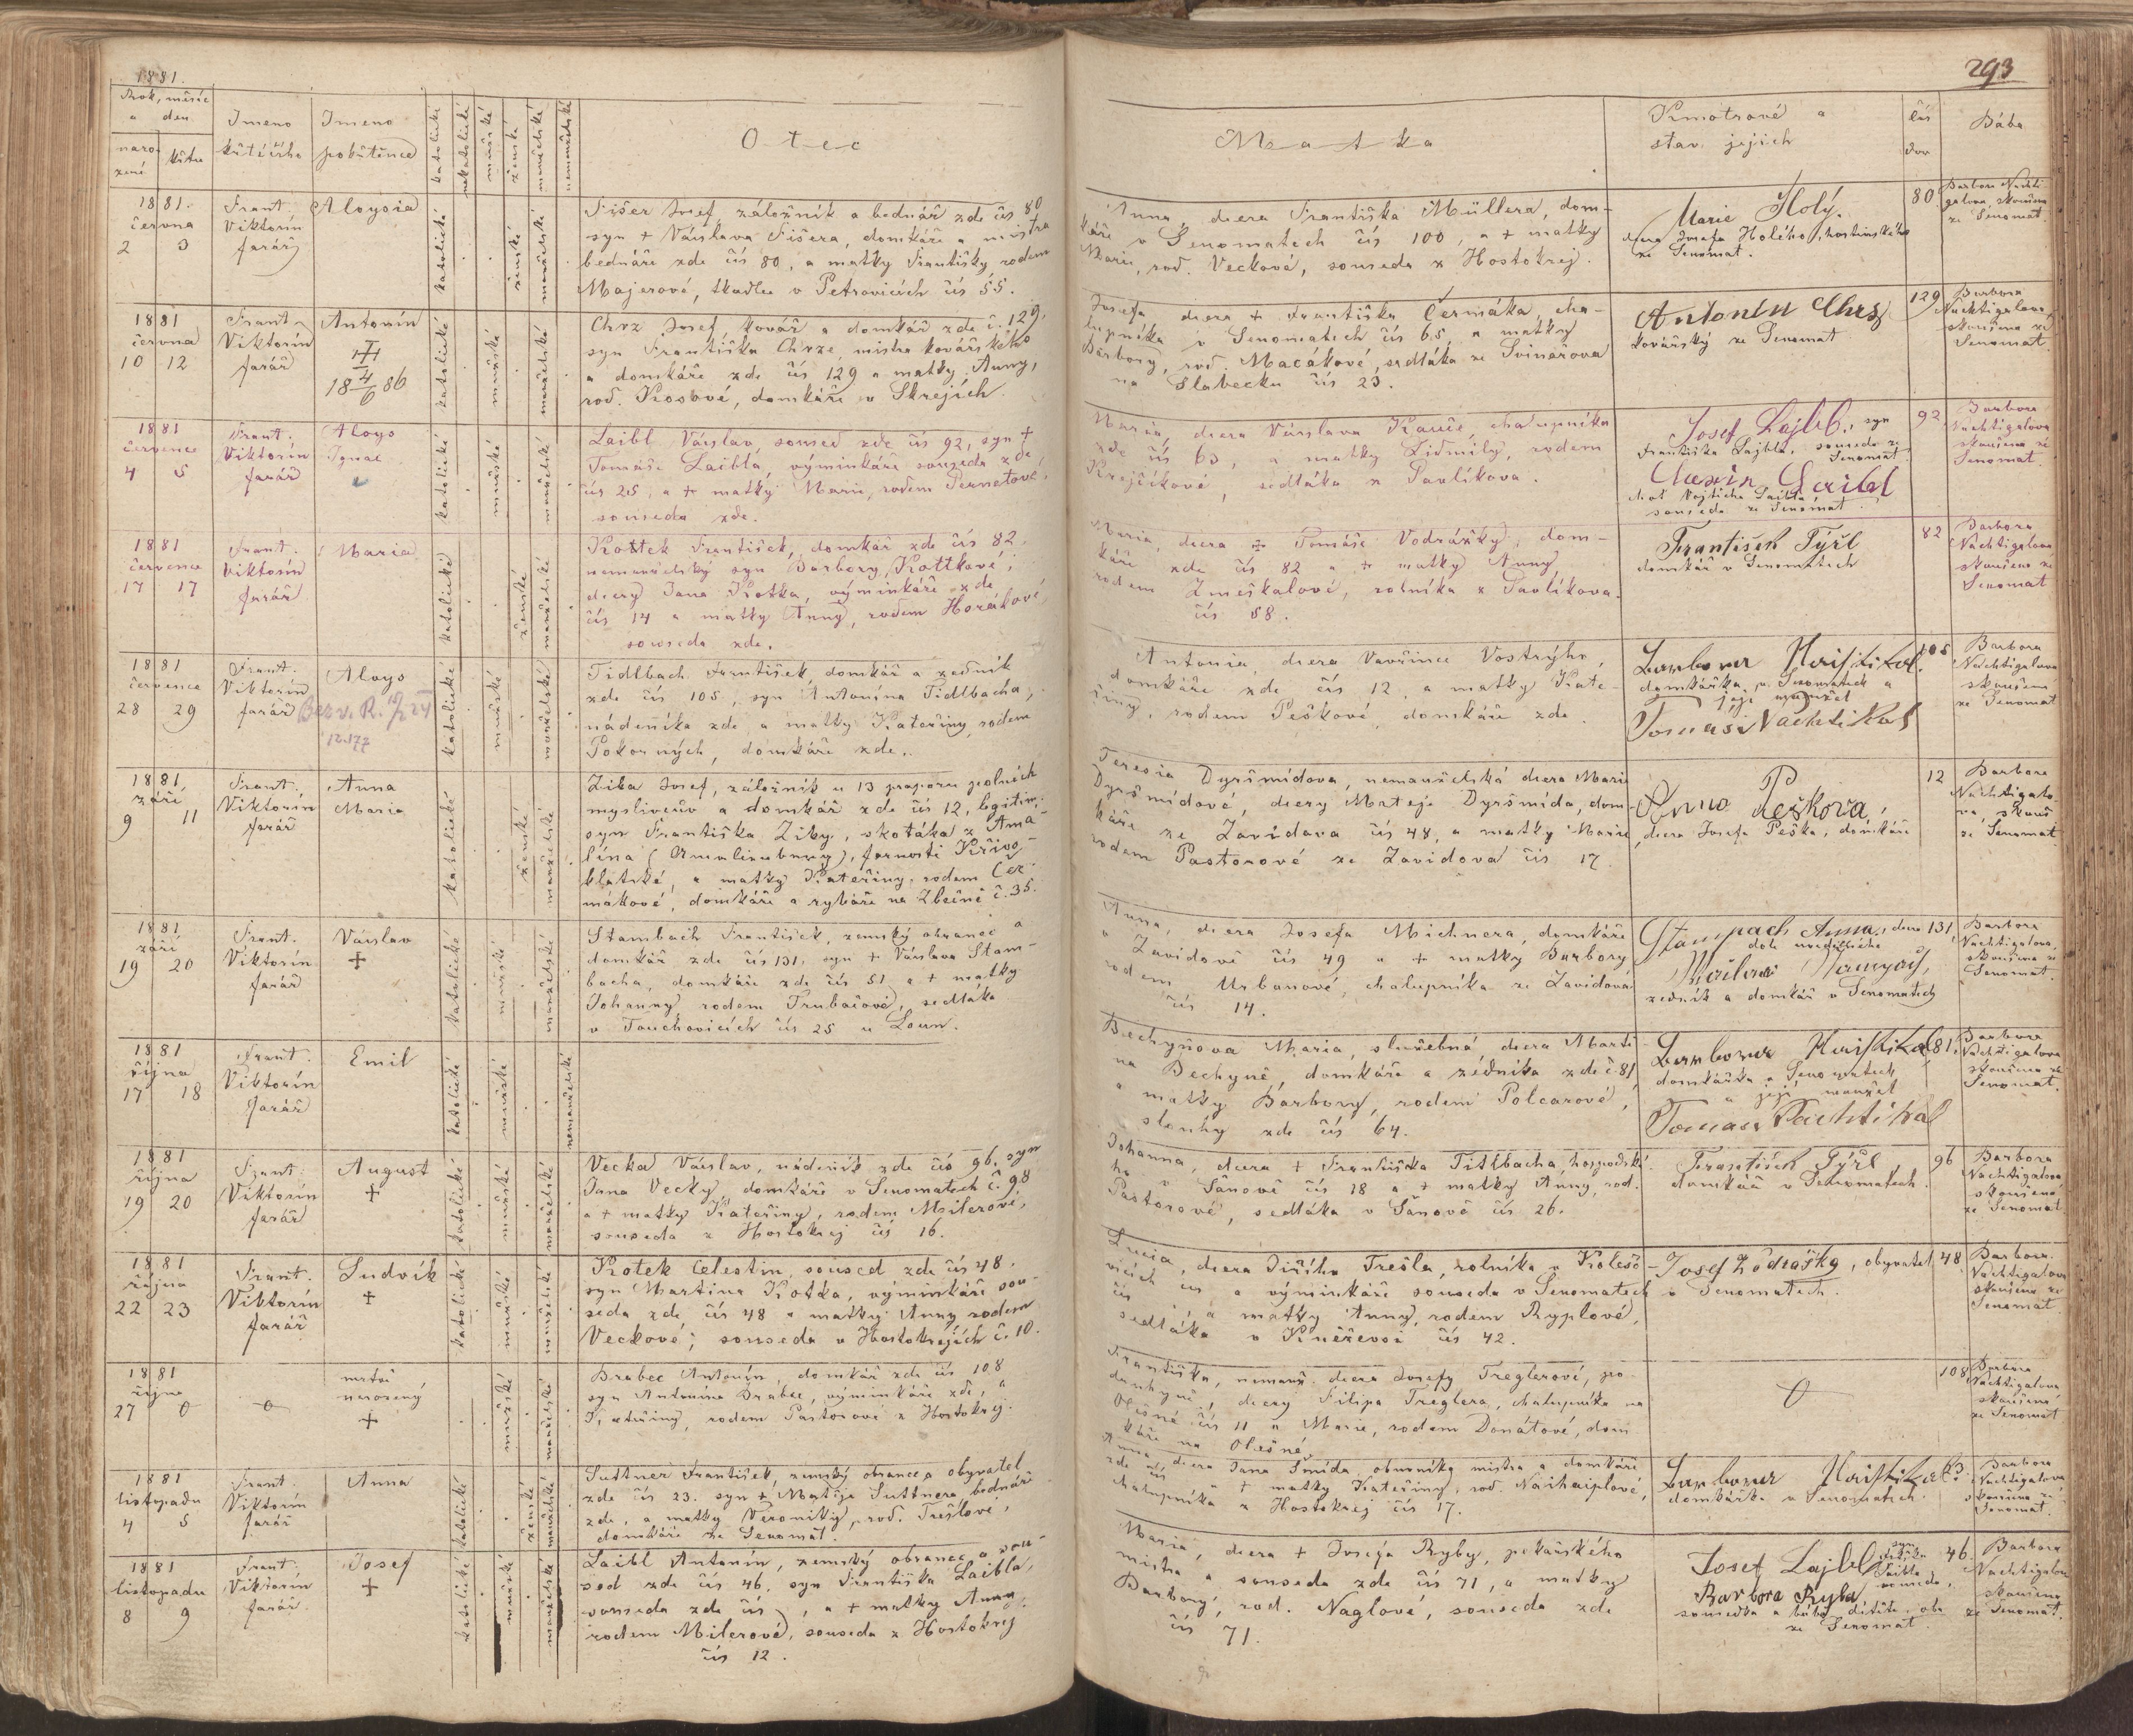 1881.
293
Rok, měsíc
a den
naro-
zení
křtu
Jmeno
křtícího
Jmeno
pokřtěnce
katolické
nekatolické
mužské
ženské
manželské
nemanželské
Otec
Matka
Kmotrové a
stav jejich
čís
dom
Bába
1881.
června
2 3
Frant.
Viktorín
farář
Aloysia
katolické
ženské
manželské
Fišer Josef, záložník a bednář zde čís 80
syn + Václava Fišera, domkáře a mistra
bednáře zde čís 80, a matky Františky, rodem
Majerové, tkadlce v Petrovicích čís 55.
Anna, dcera Františka Müllera, dom-
káře v Senomatech čís 100, a + matky
Marie, roď. Veckové, souseda z Hostokrej.
Marie Holý.
dcera Josefa Holého, hostinského
ze Senomat.
80
Barbora Nachti-
galova, zkoušena
ze Senomat
1881
června
10 12
Frant.
Viktorín
farář
Antonín
katolické
mužské
manželské
Chrz Josef, kovář a domkář zde č. 129,
syn Františka Chrze, mistra kovářského
a domkáře zde čís 129 a matky Anny,
roď. Kosové, domkáře v Skrejích.
Josefa dcera + Františka Čermáka, cha-
lupníka v Senomatech čís 65, a matky
Barbory, roď. Macákové, sedláka ze Svinařova
na Slabecku čís 23.
Antonín Chrz
kovářský ze Senomat
129
Barbora
Nachtigalova,
zkoušena ze
Senomat
1881
července
4 5
Frant.
Viktorín
farář
Aloys
Ignac
katolické
mužské
manželské
Laibl Václav, soused zde čís 92, syn +
Tomáše Laibla, výminkáře souseda zde,
čís 25, a + matky Marie, rodem Pernetové,
souseda zde.
Maria, dcera Václava Kauče, chalupníka
zde čís 63, a matky Lidmily, rodem
Krejčíkové, sedláka z Pavlíkova.
Josef Lajbl, syn
Františka Lajbla, souseda ze
Senomat
souseda ze Senomat
92
Barbora
Nachtigalova
zkoušena ze
Senomat
1881
července
17 17
Frant.
Viktorín
farář
Maria
katolické
ženské
manželské
Kottek František, domkář zde čís 82.
nemanželský syn Barbory Kottkové,
dcery Jana Kotka, výminkáře zde
čís 14 a matky Anny, rodem Horákové,
souseda zde.
Maria, dcera + Tomáše Vodrážky, dom-
káře zde čís 82 a + matky Anny,
rodem Zmeškalové, rolníka z Pavlíkova
čís 58.
František Týřl
domkář v Senomatech
82
Barbora
Nachtigalova
zkoušena ze
Senomat
1881
července
28 29
Frant.
Viktorín
farář
Aloys
katolické
mužské
manželské
Tidlbach František, domkář a zedník
zde čís 105, syn Antonína Tidlbacha,
nádeníka zde, a matky Kateřiny, rodem
Pokorných, domkáře zde.
Antonia, dcera Vavřince Vostrýho,
domkáře zde čís 12, a matky Kate-
řiny, rodem Peškové, domkáře zde.
domkářka v Senomatech a
její manžel
Tomas Nachtikal
105
Barbora
Nachtigalova
zkoušená
ze Senomat
1881
září
9 11
Frant.
Viktorín
farář
Anna
Maria
katolické
ženské
manželské
Ziba Josef, záložník u 13 praporu polních
myslivcův a domkář zde čís 12, legitim.
syn Františka Ziby, skotáka z Ama-
lína (Amalienburg), farnosti Křivo-
klátské, a matky Kateřiny, rodem Čer-
mákové, domkáře a rybáře na Zbečně č. 35.
Teresia Dyršmídova, nemanželská dcera Marie
Dyršmídové, dcery Mateje Dyršmída, dom-
káře ze Zavidova čís 48, a matky Marie
rodem Pastorové ze Zavidova čís 17
Anna Peškova,
dcera Josefa Peška, domkáře
12
Barbora
Nachtigalo-
va, zkouš
ze Senomat
1881
září
19 20
Frant.
Viktorín
farář
Václav
+
katolické
mužské
manželské
Stambach František, zemský obranec a
domkář zde čís 131, syn + Václava Stam-
bacha, domkáře zde čís 51 a + matky
Johanny rodem Trubačové, sedláka
v Touchovicích čís 25 u Loun.
Anna, dcera Josefa Michnera, domkáře
v Zavidově čís 49 a + matky Barbory
rodem Urbanové, chalupníka ze Zavidova
čís 14.
Stampach Anna, dcera
zedník a domkář v Senomatech
131
Barbora
Nachtigalova,
zkoušena ze
Senomat.
1881
října
17 18
Frant.
Viktorín
farář
Emil
katolické
mužské
nemanželské
Bechyňova Maria, služebná, dcera Marti-
na Bechyně, domkáře a zedníka zde č. 81
a matky Barbory, rodem Polcarové,
slouhy zde čís 64.
domkářka v Senomatech
a její manžel
Tomas Nachtikal
81
Barbora
Nachtigalova
zkoušena ze
Senomat.
1881
října
19 20
Frant.
Viktorín
farář
August
+
katolické
mužské
manželské
Vecka Václav, nádeník zde čís 96, syn
Jana Vecky, domkáře v Senomatech č. 98
a + matky Kateřiny, rodem Milerové,
souseda z Hostokrej čís 16.
Johanna, dcera + Františka Titlbacha, hospodské-
ho v Šanově čís 18 a + matky Anny, rod.
Pastorové, sedláka v Šanově čís 26.
František Týřl
domkář v Senomatech.
96
Barbora
Nachtigalova
zkoušena
ze Senomat
1881
října
22 23
Frant.
Viktorín
farář
Ludvík
+
katolické
mužské
manželské
Kotek Celestin, soused zde čís 48,
syn Martina Kotka, výminkáře sou-
seda zde čís 48 a matky Anny rodem
Veckové, souseda v Hostokrejích č. 10.
Lucia, dcera Jiřího Trešla, rolníka v Kolešo-
vicích čís a výminkáře souseda v Senomatech
čís a matky Anny, rodem Ryplové,
sedláka v Kněževsi čís 42.
Josef Vodražka, obyvatel
v Senomatech.
48
Barbora
Nachtigalova
zkoušena ze
Senomat
1881
října
27 0
0
mrtvě
narozený
+
mužské
manželské
Brabec Antonín, domkář zde čís 108
syn Antonína Brabce, výminkáře zde, a
Kateřiny, rodem Pastorové z Hostokrej.
Františka, nemanž. dcera Josefy Treglerové, po-
druhyně, dcery Filipa Treglera, chalupníka na
Olešné čís 11 a Marie, rodem Donátové, dom-
káře na Olešné.
0
108
Barbora
Nachtigalova
zkoušena
ze Senomat
1881
listopadu
4 5
Frant.
Viktorín
farář
Anna
katolické
ženské
manželské
Suttner František, zemský obranec a obyvatel
zde čís 23. syn + Matěje Suttnera, bednáře
zde, a matky Veroniky, roď. Trešlové,
domkáře ze Senomat.
Anna dcera Jana Šmída, obuvníka mistra a domkáře
zde čís + matky Kateřiny, roď. Naihaiplové,
chalupníka z Hostokrej čís 17.
domkářka v Senomatech.
Barbora
Nachtigalová
zkoušena ze
Senomat.
1881
listopadu
8 9
Frant.
Viktorín
farář
Josef
+
katolické
mužské
manželské
Laibl Antonín, zemský obranec a sou-
sed zde čís 46, syn Františka Laibla,
souseda zde čís , a + matky Anny,
rodem Milerové, souseda z Hostokrej
čís 12.
Maria, dcera + Josefa Ryby, pekařského
mistra a souseda zde čís 71, a matky
Barbory, roď. Naglové, souseda zde
čís 71.
Josef Lajbl
Barbora Ryba
sousedka a bába dítěte, oba
ze Senomat
46
Barbora
Nachtigalova
zkoušena
ze Senomat.